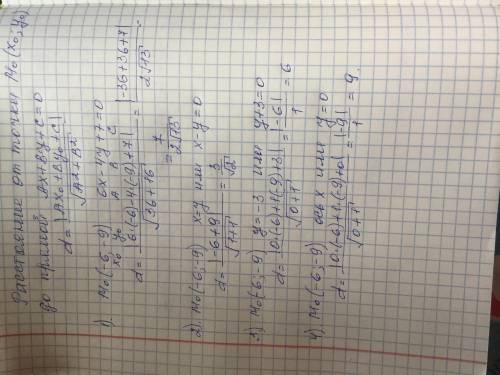 Расстояние от точки M₀(x₀; y₀)
до прямой Ax+By+c=0
d = |Ax₀+By₀+c| / √(A²+B²)
1). M₀(-6; -9) 6x-4y+7=0
x₀ y₀ A B C
d = |6·(-6)-4(-9)+7| / √(36+16) = |-36+36+7| / 2√13 =
= 7 / 2√13
2). M₀(-6; -9) x=y или x-y=0
d = |-6+9| / √(1+1) = 3/√2
3) M₀(-6; -9) y=-3 или y+3=0
d = |0·(-6)+1·(-9)+3| / √(0+1) = |-6| / 1 = 6
4) M₀(-6; -9) ось x или y=0
d = |0·(-6)+1·(-9)+0| / √(0+1) = |-9| / 1 = 9.